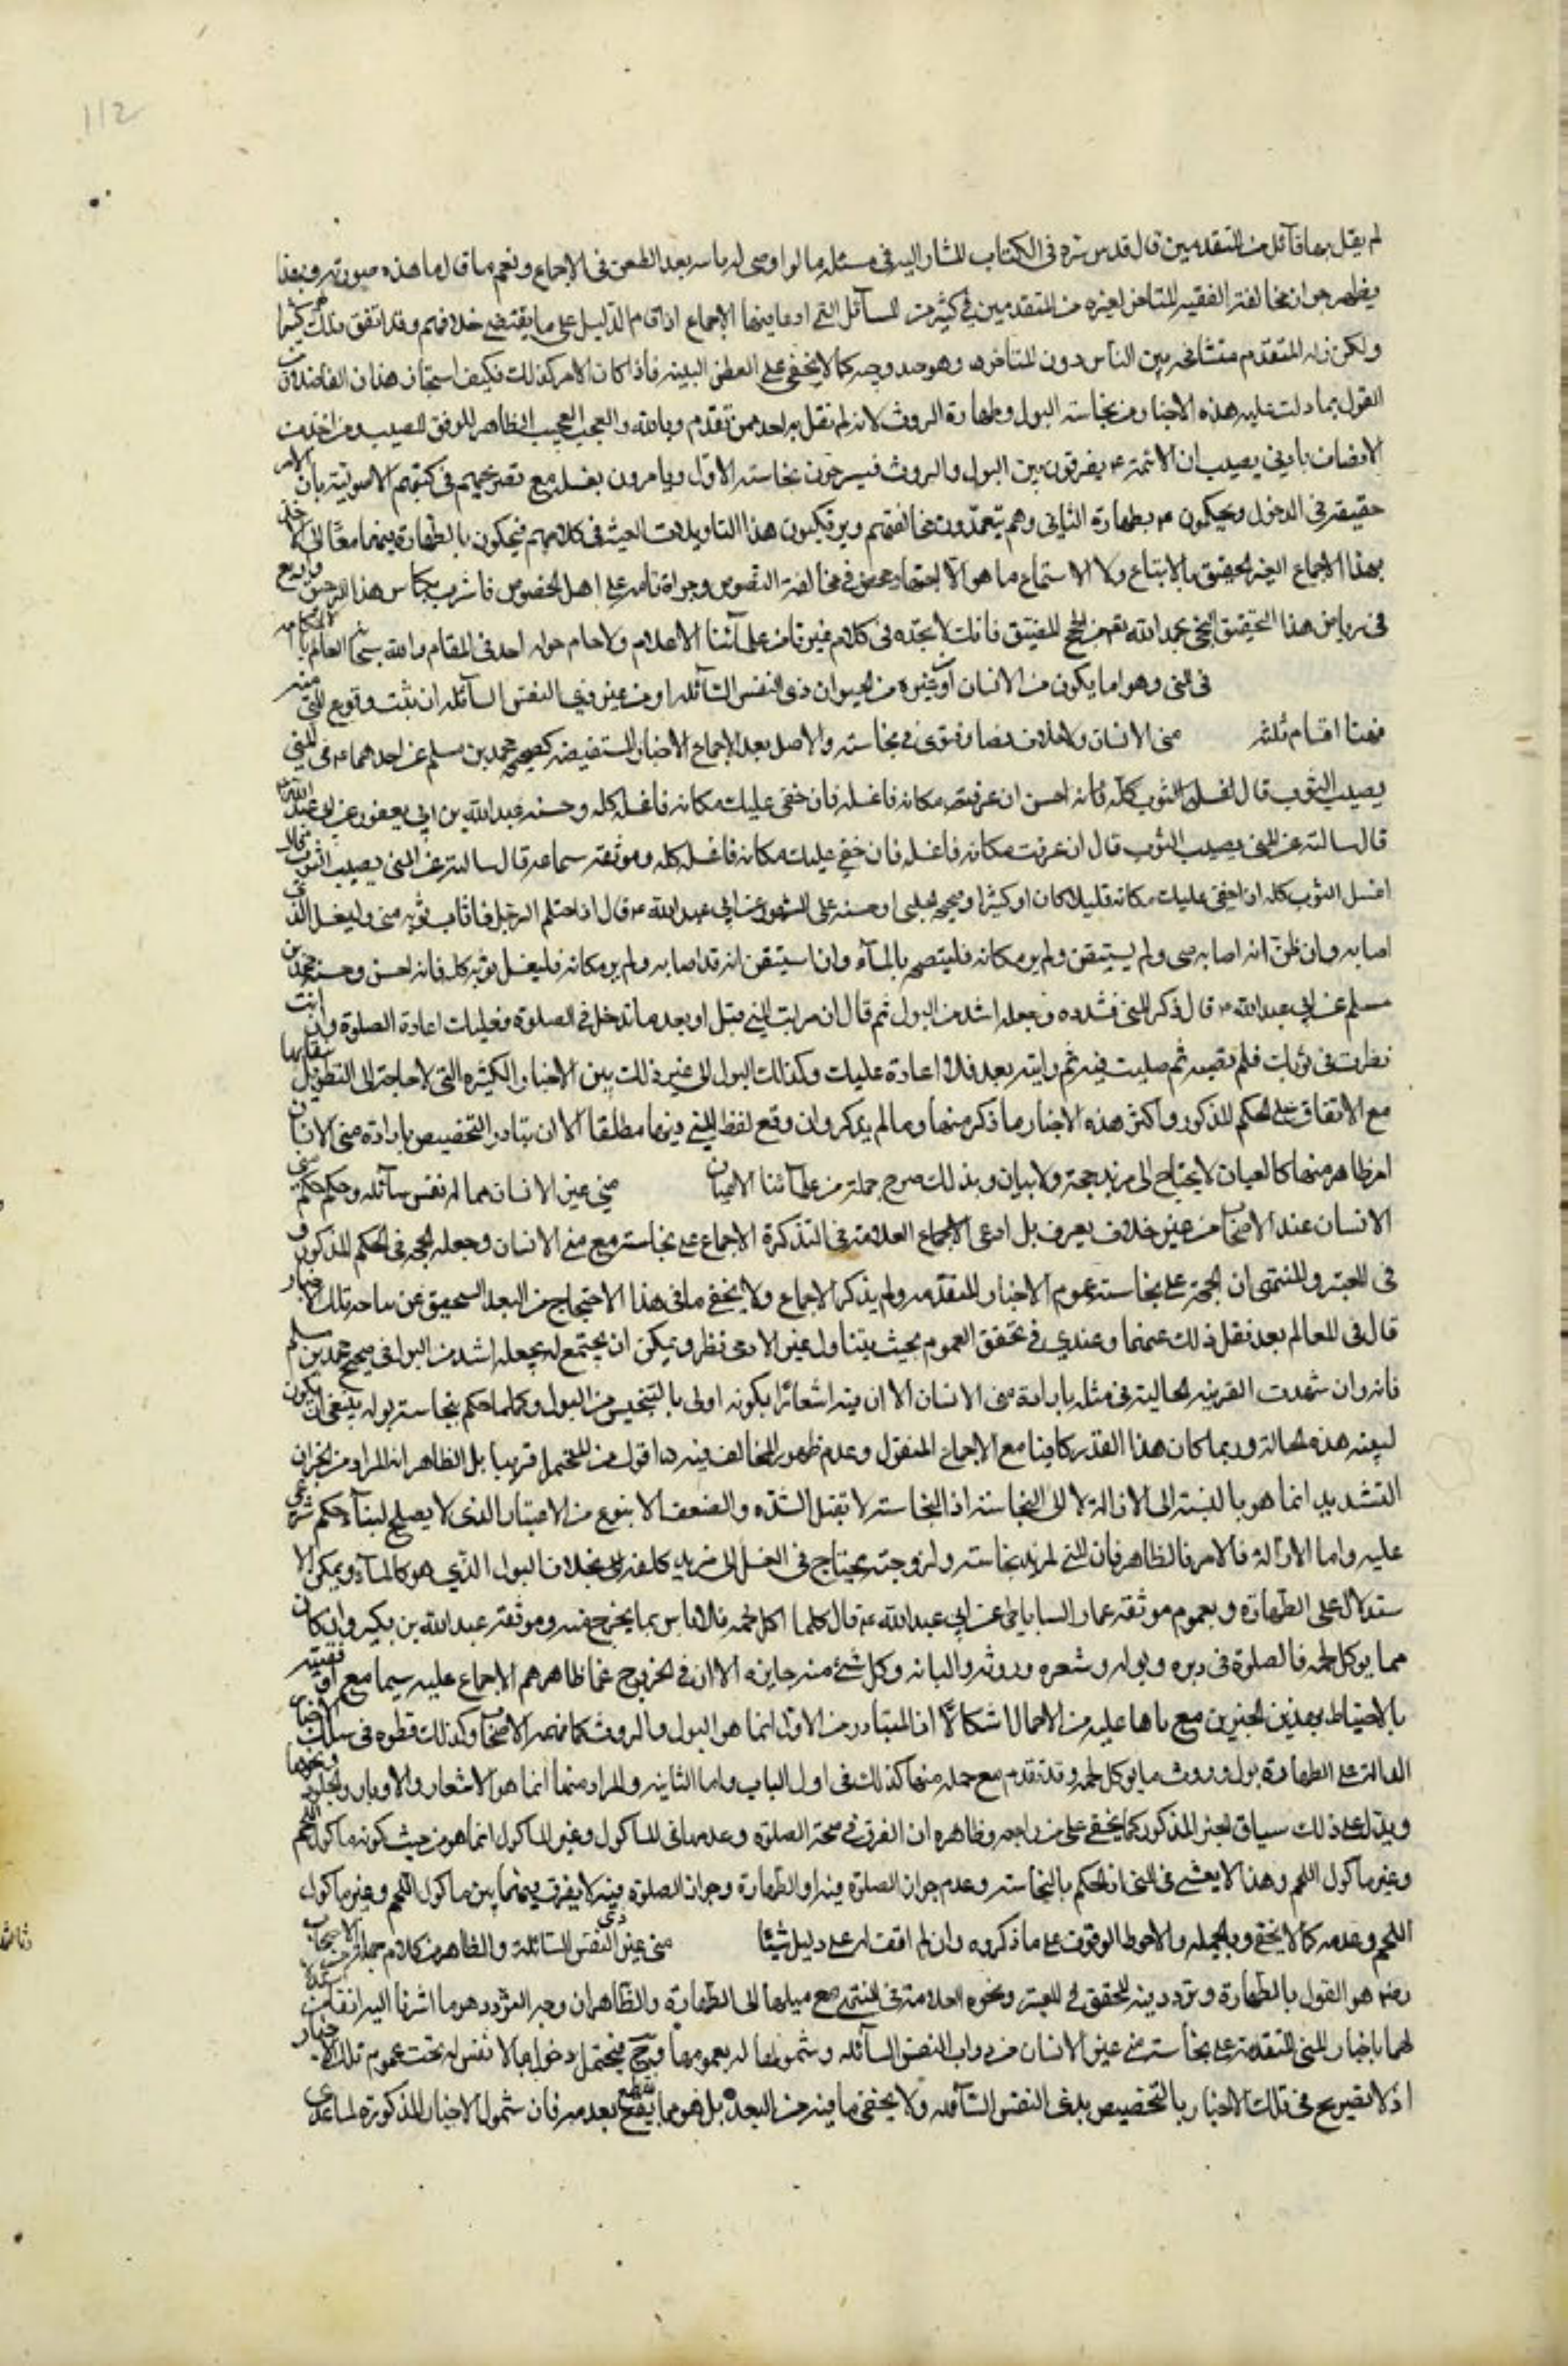 112
لم يقل بها قائل من المتقدمين قال قدس سره في الكتاب المشار اليه في مسئلة ما لو اوصى له بعد الطعن في الاجماع ونعم ما قال ما هذه صورته وبهذا
يظهر جواز مخالفة الفقيه المتاخر لغيره من المتقدمين في كثير من المسائل التي ادعى فيها الاجماع اذا قام الدليل على ما يقتضي خلافهم وقد اتفق ذلك لهم كثيرا
ولكن زلة المتقدم مسامحة بين الناس دون المتاخر وهو جيد وجيه كما لا يخفى على الفطن النبيه فاذا كان الامر كذلك فكيف استجاز هذان الفاضلان
القول بما دلت عليه هذه الاخبار من نجاسة البول وطهارة الروث لانه لم يقل به احد ممن تقدم وبالله والعجب العجيب الظاهر للموفق المصيب ومن اخذ من
الانصاف باوفى نصيب ان الائمة ع يفرقون بين البول والروث فيصرحون بنجاسة الاول ويامرون بغسله مع تصريحهم في كتبهم الاصولية بان الامر
حقيقة في الوجوب ويحكمون ع بطهارة الثاني وهم يتعمدون مخالفتهم ويرتكبون هذا التاويلات الغثة في كلامهم فيحكمون بالطهارة فيهما معا
بهذا الاجماع الغير الحقيق بالاتباع ولا الاستماع ما هو الا اجتهاد محض في مخالفة النصوص وجراة تامة على اهل الخصوص فاشرب بكاس هذا الرحيق وارتع
في رياض هذا التحقيق فانك لا تجده في كلام غيرنا من علمائنا الاعلام ولا حام حوله احد في المقام والله سبحانه العالم باحكامه
في المني وهو اما يكون من الانسان او غيره من الحيوان ذي النفس السائلة او من غير ذي النفس السائلة ان ثبت وقوع المني منه
فهنا اقسام ثلثة مني الانسان ولا خلاف نصا وفتوى في نجاسته والاصل بعد الاجماع الاخبار المستفيضة كصحيحة محمد بن مسلم عن احدهما ع في المني
يصيب الثوب قال ان عرفت مكانه فاغسله فان خفي عليك مكانه فاغسله كله وحسنة عبد الله بن ابي يعفور عن ابي عبد الله ع
قال سالته عن المني يصيب الثوب قال ان عرفت مكانه فاغسله فان خفي عليك مكانه فاغسله كله وموثقة سماعة قال سالته عن المني يصيب الثوب قال
اغسل الثوب كله اذا خفي عليك مكانه قليلا كان او كثيرا وصحيحة الحلبي او حسنة على المشهور عن ابي عبد الله ع قال اذا احتلم الرجل فاصاب ثوبه مني فليغسل الذي
اصابه وان ظن انه اصابه مني ولم يستيقن ولم ير مكانه فلينضحه بالماء وان استيقن انه قد اصابه ولم ير مكانه فليغسل ثوبه كله فانه احسن وحسنة محمد بن
مسلم عن ابي عبد الله ع قال ذكر المني فشدده وجعله اشد من البول ثم قال ان رايت المني قبل او بعد ما تدخل في الصلوة فعليك اعادة الصلوة وان انت
نظرت في ثوبك فلم تصبه ثم صليت فيه ثم رايته بعد فلا اعادة عليك وكذلك البول الى غير ذلك من الاخبار الكثيرة التي لا حاجة الى التطويل بنقلها
مع الاتفاق على الحكم المذكور واكثر هذه الاخبار ما ذكر منها وما لم يذكر وان وقع لفظ المني فيها مطلقا الا ان تبادر التخصيص بارادة مني الانسان
امر ظاهر منها كالعيان لا يحتاج الى مزيد حجة ولا بيان وبذلك صرح جملة من علمائنا الاعيان مني غير الانسان مما له نفس سائلة وحكمه حكم مني
الانسان عند الاصحاب من غير خلاف يعرف بل ادعى العلامة في التذكرة الاجماع على نجاسته مع مني الانسان وجعله الحجة في الحكم المذكور و
في المعتبر والمنتهى ان الحجة على نجاسته عموم الاخبار المتقدمة ولم يذكر الاجماع ولا يخفى ما في هذا الاحتجاج من البعد السحيق عن ساحة تلك الاخبار
قال في المعالم بعد نقل ذلك عنهما وعندي في تحقق العموم بحيث يتناول غير الادمي نظر ويمكن ان يحتج له بجعله اشد من البول في صحيح محمد بن مسلم
فانه وان شهدت القرينة الحالية في مثله بارادة مني الانسان الا ان فيه اشعارا بكونه اولى بالتنجيس من البول وكلما حكم بنجاسة بوله ينبغي ان يكون
لمنيه هذه الحالة وربما كان هذا القدر كافيا مع الاجماع المنقول وعدم ظهور المخالف فيه اقول من المحتمل قريبا بل الظاهر ان المراد من الخبر ان
التشديد انما هو بالنسبة الى الازالة لا الى النجاسة اذ النجاسة لا تقبل الشدة والضعف الا بنوع من الاعتبار الذي لا يصلح لبناء حكم شرعي
عليه واما الازالة فالامر فيها ظاهر فان المني لمزيد نجاسته ولزوجته يحتاج في الغسل الى مزيد كلفة بخلاف البول الذي هو كالماء ويمكن الا
ستدلال على الطهارة بعموم موثقة عمار الساباطي عن ابي عبد الله ع قال كلما اكل لحمه فلا باس بما يخرج منه وموثقة عبد الله بن بكير وان كان
مما يوكل لحمه فالصلوة في وبره وبوله وشعره وروثه والبانه وكل شيء منه جايزة الا ان في الخروج عما ظاهرهم الاجماع عليه سيما مع اوفقيته
بالاحتياط بهذين الخبرين مع ما هما عليه من الاجمال اشكالا اذ المتبادر من الاول انما هو البول والروث كما فهمه الاصحاب وكذلك نظموه في سلك الاخبار
الدالة على الطهارة بول وروث ما يوكل لحمه وقد تقدم مع جملة منها كذلك في اول الباب واما الثانية والمراد منها انما هو الاشعار والاوبار والجلود ونحوها
ويدل على ذلك سياق الخبر المذكور كما لا يخفى على من راجعه وظاهره ان الفرق في صحة الصلوة وعدمها في الماكول وغير الماكول انما هو من حيث كونه ماكول اللحم
وغير ماكول اللحم وهذا لا يتمشى في المني اذ الحكم بالنجاسة وعدم جواز الصلوة فيه او الطهارة وجواز الصلوة فيه لا يفرق فيهما بين ماكول اللحم وغير ماكول
اللحم وعدمه كما لا يخفى وبالجملة والاحوط الوقوف على ما ذكروه وان لم اقف له على دليل شيئا مني غير ذي النفس السائلة والظاهر من كلام جملة من الاصحاب
رضه هو القول بالطهارة وتردد فيه المحقق في المعتبر ونحوه العلامة في المنتهى مع ميلهما الى الطهارة والظاهر ان وجه التردد هو ما اشرنا اليه انفا من
لهما باخبار المني المتقدمة على نجاسة مني غير الانسان من ذوات النفس السائلة وشمولها له بعمومها وح فيحتمل دخول ما لا نفس له تحت عموم تلك الاخبار
اذ لا تصريح في تلك الاخبار بالتخصيص بذي النفس السائلة ولا يخفى ما فيه من البعد بل هو مما يقطع بعدمه فان شمول الاخبار المذكورة لما عدى